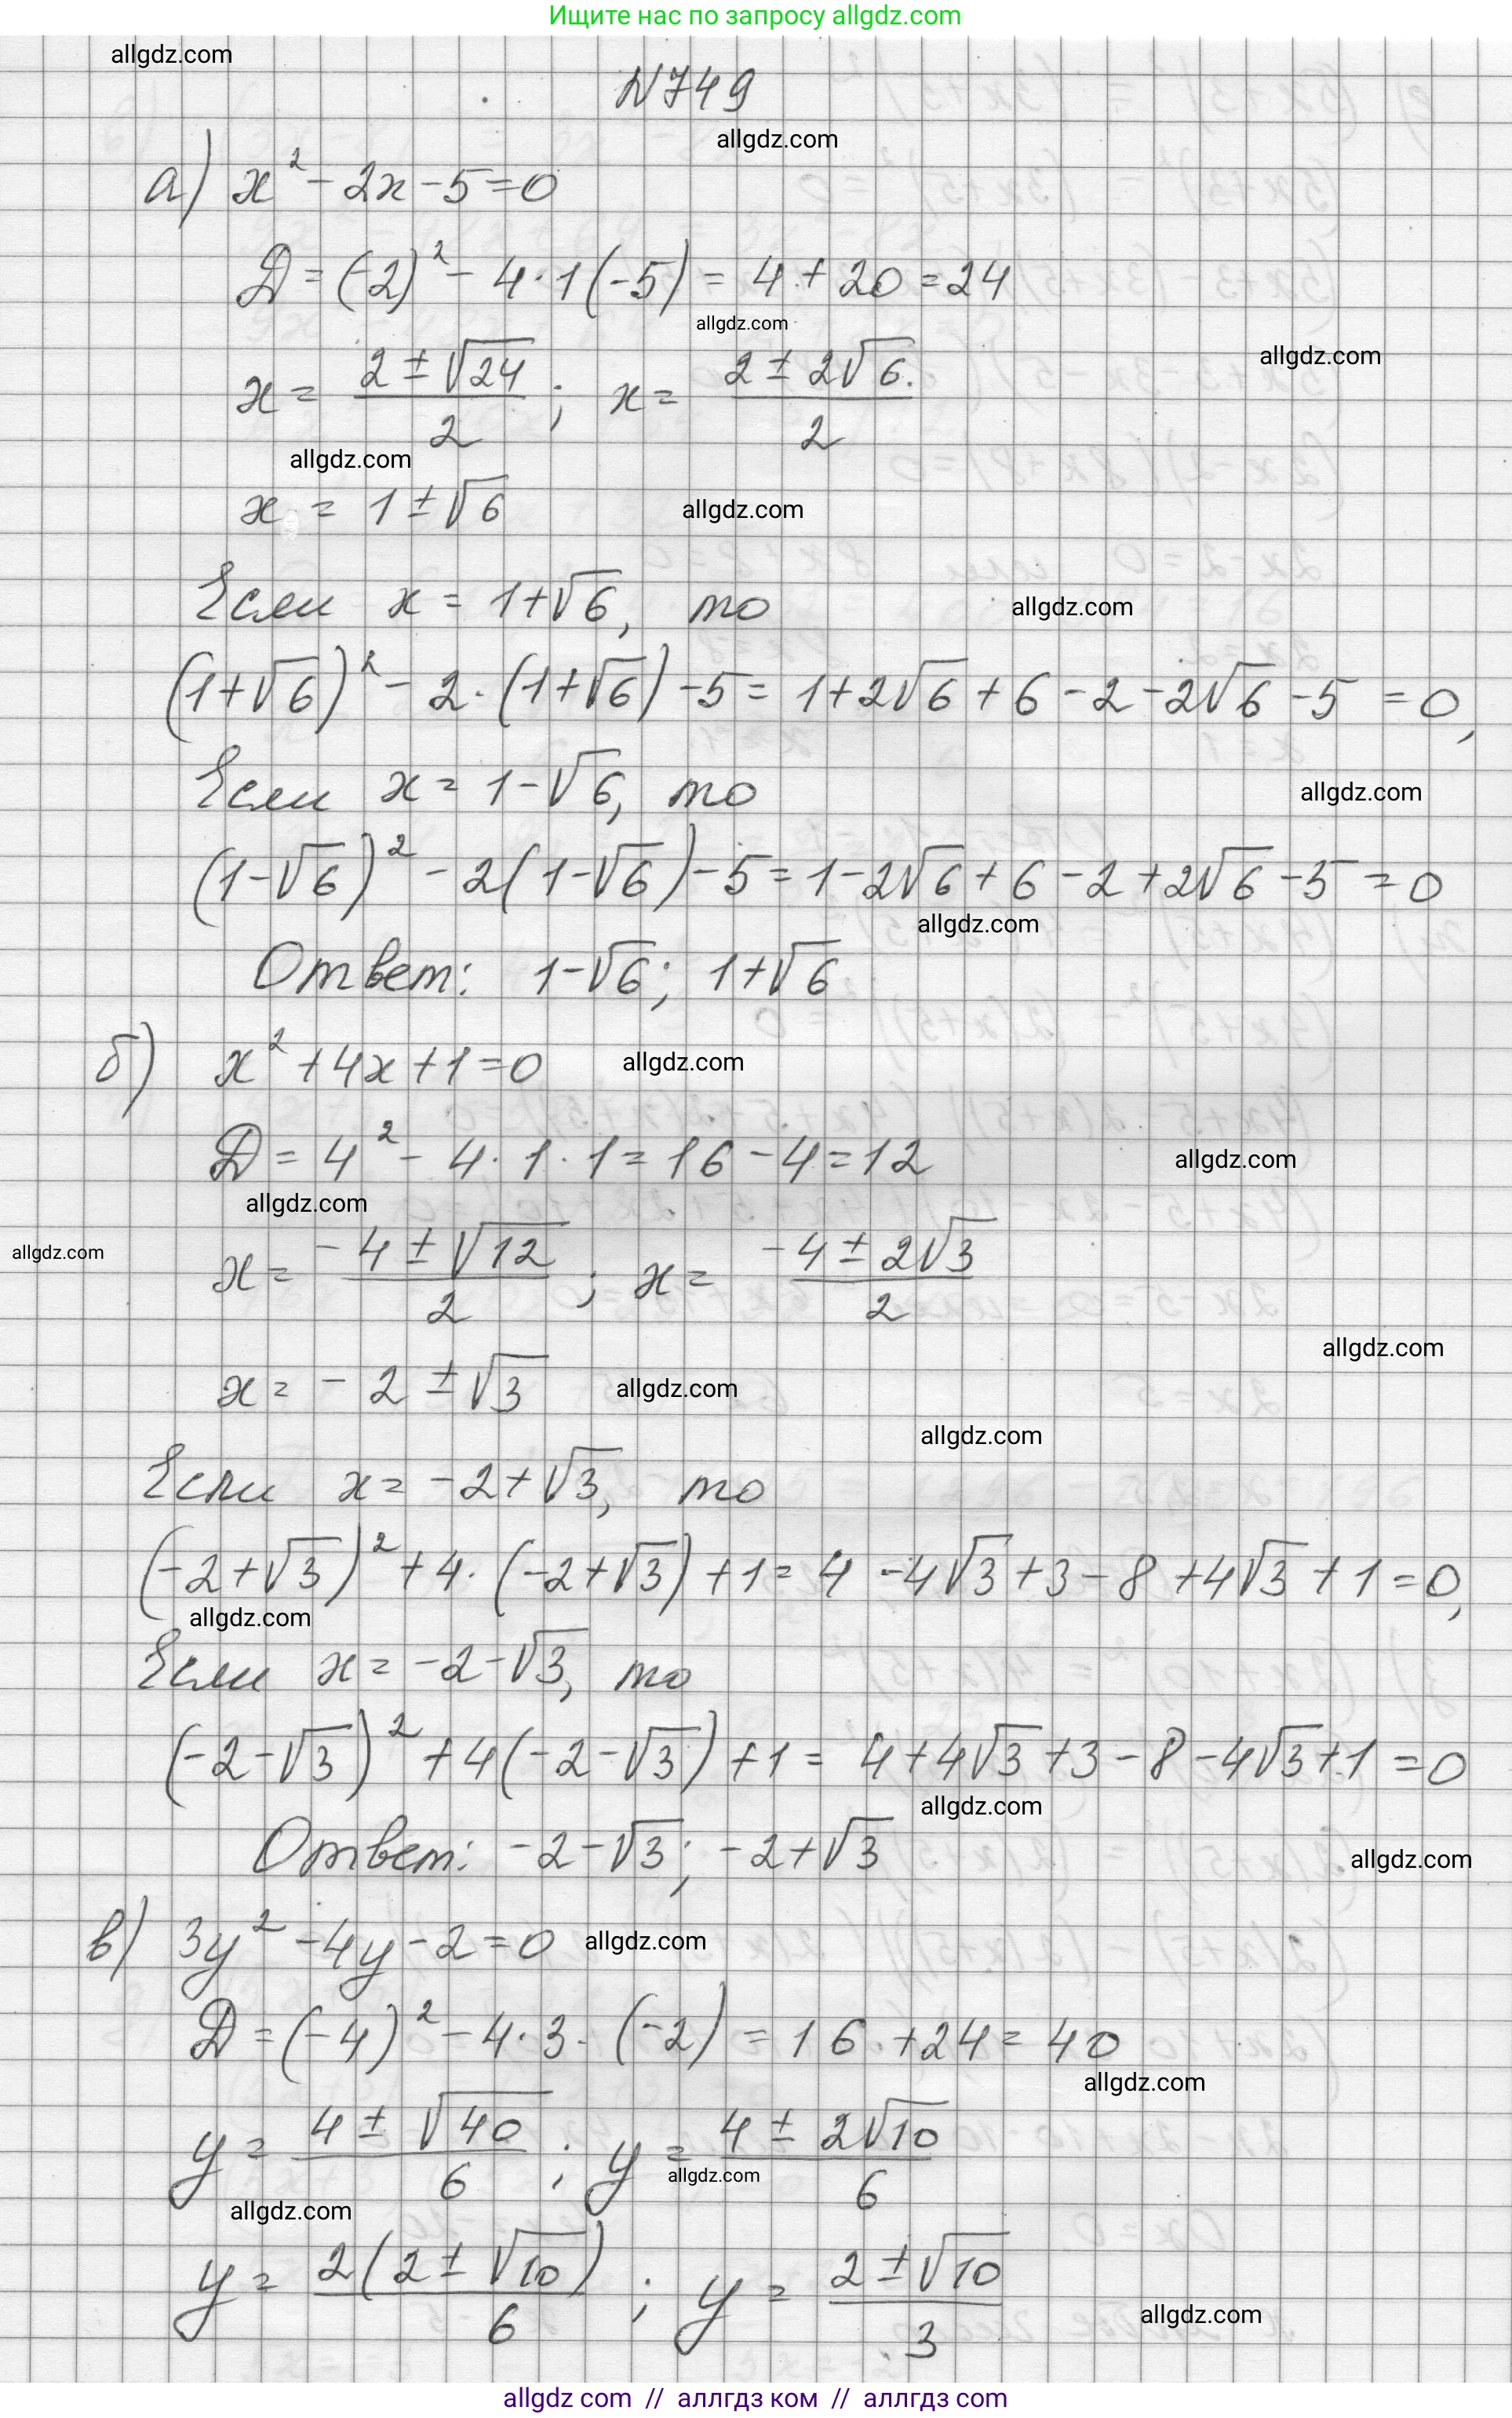 Ищите нас по запросу allgdz.com
allgdz.com
N749
allgdz.com
а) x² - 2x - 5 = 0
D = (-2)² - 4·1(-5) = 4 + 20 = 24
allgdz.com
allgdz.com
x = (2 ± √24)/2 ; x = (2 ± 2√6)/2
allgdz.com
x = 1 ± √6
allgdz.com
Если x = 1+√6, то
allgdz.com
(1+√6)² - 2·(1+√6) - 5 = 1+2√6+6-2-2√6-5 = 0,
Если x = 1-√6, то
allgdz.com
(1-√6)² - 2(1-√6) - 5 = 1-2√6+6-2+2√6-5 = 0
allgdz.com
Ответ: 1-√6; 1+√6
б) x² + 4x + 1 = 0
allgdz.com
D = 4² - 4·1·1 = 16 - 4 = 12
allgdz.com
allgdz.com
allgdz.com
x = (-4 ± √12)/2 ; x = (-4 ± 2√3)/2
allgdz.com
x = -2 ± √3
allgdz.com
allgdz.com
Если x = -2+√3, то
(-2+√3)² + 4·(-2+√3) + 1 = 4 - 4√3 + 3 - 8 + 4√3 + 1 = 0,
allgdz.com
Если x = -2-√3, то
(-2-√3)² + 4(-2-√3) + 1 = 4+4√3+3-8-4√3+1 = 0
allgdz.com
Ответ: -2-√3; -2+√3
allgdz.com
в) 3y² - 4y - 2 = 0
allgdz.com
D = (-4)² - 4·3·(-2) = 16 + 24 = 40
allgdz.com
y = (4 ± √40)/6 ; y = (4 ± 2√10)/6
allgdz.com
allgdz.com
y = 2(2 ± √10)/6 ; y = (2 ± √10)/3
allgdz.com
allgdz com // аллгдз ком // аллгдз com